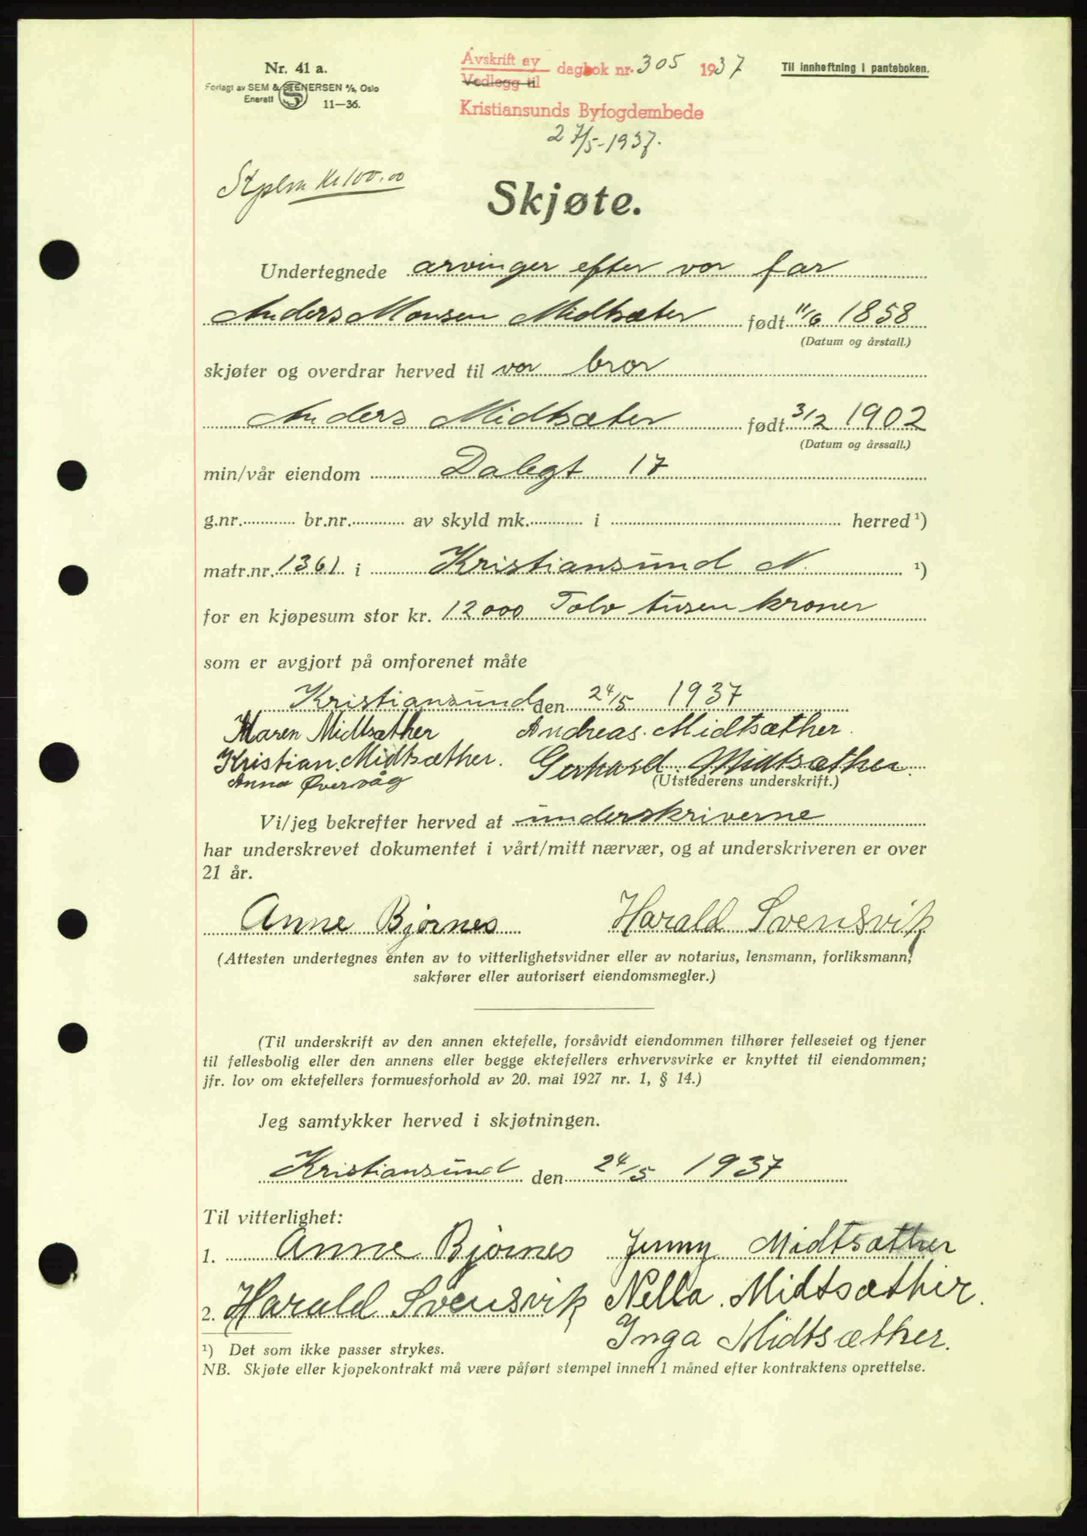 Nr. 41 a.
Forlagt av SEM & STENERSEN A/S, Oslo
Enerett S 11—36.
Avskrift av
Vedlegg til
dagbok nr. 305 1937
Kristiansunds Byfogdembede
27/5-1937.
Til innheftning i panteboken.
Stplm kr 100.00
Skjøte.
Undertegnede arvinger efter vor far
Anders Monsen Midtsæter født 11/6 1858
(Datum og årstall.)
skjøter og overdrar herved til vor bror
Anders Midtsæter født 3/2 1902
(Datum og årssall.)
min/vår eiendom Dalegt 17
g.nr. br.nr. av skyld mk. i herred ¹)
matr.nr. 1361 i Kristiansund N. ¹)
for en kjøpesum stor kr. 12000 Tolv tusen kroner
som er avgjort på omforenet måte
Kristiansund den 24/5 1937
Maren Midtsæther Andreas. Midtsæther.
Kristian. Midtsæther. Gerhard. Midtsæther.
Anna Øvervåg
(Utstederens underskrift.)
Vi/jeg bekrefter herved at underskriverne
har underskrevet dokumentet i vårt/mitt nærvær, og at underskriveren er over
21 år.
Anne Bjørnes Harald Svensvik
(Attesten undertegnes enten av to vitterlighetsvidner eller av notarius, lensmann, forliksmann,
sakfører eller autorisert eiendomsmegler.)
(Til underskrift av den annen ektefelle, forsåvidt eiendommen tilhører felleseiet og tjener
til fellesbolig eller den annens eller begge ektefellers erhvervsvirke er knyttet til eiendommen;
jfr. lov om ektefellers formuesforhold av 20. mai 1927 nr. 1, § 14.)
Jeg samtykker herved i skjøtningen.
Kristiansund den 24/5 1937
Til vitterlighet:
1. Anne Bjørnes Jenny Midtsæther
2. Harald Svensvik Nella. Midtsæther.
Inga Midtsæther.
¹) Det som ikke passer strykes.
NB. Skjøte eller kjøpekontrakt må være påført stempel innen 1 måned efter kontraktens oprettelse.